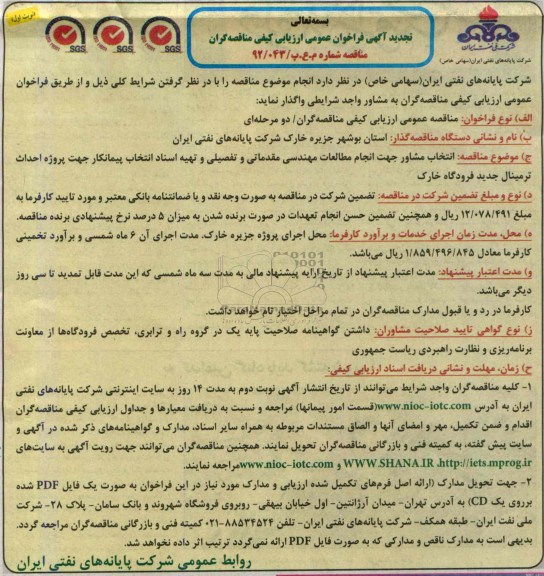 نوبت اول
بسمه‌تعالی
تجدید آگهی فراخوان عمومی ارزیابی کیفی مناقصه‌گران
مناقصه شماره م.ع.پ/۹۲/۰۴۳
شرکت پایانه‌های نفتی ایران(سهامی خاص)
SGS SGS SGS
شرکت پایانه‌های نفتی ایران(سهامی خاص) در نظر دارد انجام موضوع مناقصه را با در نظر گرفتن شرایط کلی ذیل و از طریق فراخوان
عمومی ارزیابی کیفی مناقصه‌گران به مشاور واجد شرایطی واگذار نماید:
الف) نوع فراخوان: مناقصه عمومی ارزیابی کیفی مناقصه‌گران/ دو مرحله‌ای
ب) نام و نشانی دستگاه مناقصه‌گذار: استان بوشهر جزیره خارک شرکت پایانه‌های نفتی ایران
ج) موضوع مناقصه: انتخاب مشاور جهت انجام مطالعات مهندسی مقدماتی و تفصیلی و تهیه اسناد انتخاب پیمانکار جهت پروژه احداث
ترمینال جدید فرودگاه خارک
د) نوع و مبلغ تضمین شرکت در مناقصه: تضمین شرکت در مناقصه به صورت وجه نقد و یا ضمانتنامه بانکی معتبر و مورد تایید کارفرما به
مبلغ ۱۲/۰۷۸/۴۹۱ ریال و همچنین تضمین حسن انجام تعهدات در صورت برنده شدن به میزان ۵ درصد نرخ پیشنهادی برنده مناقصه.
ه) محل، مدت زمان اجرای خدمات و برآورد کارفرما: محل اجرای پروژه جزیره خارک. مدت اجرای آن ۶ ماه شمسی و برآورد تخمینی
کارفرما معادل ۱/۸۵۹/۴۹۶/۸۴۵ ریال می‌باشد.
و) مدت اعتبار پیشنهاد: مدت اعتبار پیشنهاد از تاریخ ارایه پیشنهاد مالی به مدت سه ماه شمسی که این مدت قابل تمدید تا سی روز
دیگر می‌باشد.
کارفرما در رد و یا قبول مدارک مناقصه‌گران در تمام مراحل اختیار تام خواهد داشت.
ز) نوع گواهی تایید صلاحیت مشاوران: داشتن گواهینامه صلاحیت پایه یک در گروه راه و ترابری، تخصص فرودگاه‌ها از معاونت
برنامه‌ریزی و نظارت راهبردی ریاست جمهوری
ح) زمان، مهلت و نشانی دریافت اسناد ارزیابی کیفی:
۱- کلیه مناقصه‌گران واجد شرایط می‌توانند از تاریخ انتشار آگهی نوبت دوم به مدت ۱۴ روز به سایت اینترنتی شرکت پایانه‌های نفتی
ایران به آدرس www.nioc-iotc.com(قسمت امور پیمانها) مراجعه و نسبت به دریافت معیارها و جداول ارزیابی کیفی مناقصه‌گران
اقدام و ضمن تکمیل، مهر و امضای آنها و الصاق مستندات مربوطه به همراه سایر اسناد، مدارک و گواهینامه‌های ذکر شده در آگهی و
سایت پیش گفته، به کمیته فنی و بازرگانی مناقصه‌گران تحویل نمایند. همچنین مناقصه‌گران می‌توانند جهت رویت آگهی به سایت‌های
http://iets.mprog.ir، WWW.SHANA.IR و www.nioc-iotc.com مراجعه نمایند.
۲- جهت تحویل مدارک (ارائه اصل فرم‌های تکمیل شده ارزیابی و مدارک مورد نیاز در این فراخوان به صورت یک فایل PDF شده
برروی یک CD) به آدرس تهران- میدان آرژانتین- اول خیابان بیهقی- روبروی فروشگاه شهروند و بانک سامان- پلاک ۲۸- شرکت
ملی نفت ایران- طبقه همکف- شرکت پایانه‌های نفتی ایران- تلفن ۸۸۵۳۴۵۲۴-۰۲۱ کمیته فنی و بازرگانی مناقصه‌گران مراجعه گردد.
بدیهی است به مدارک ناقص و مدارکی که به صورت فایل PDF ارائه نمی‌گردد ترتیب اثر داده نخواهد شد.
روابط عمومی شرکت پایانه‌های نفتی ایران